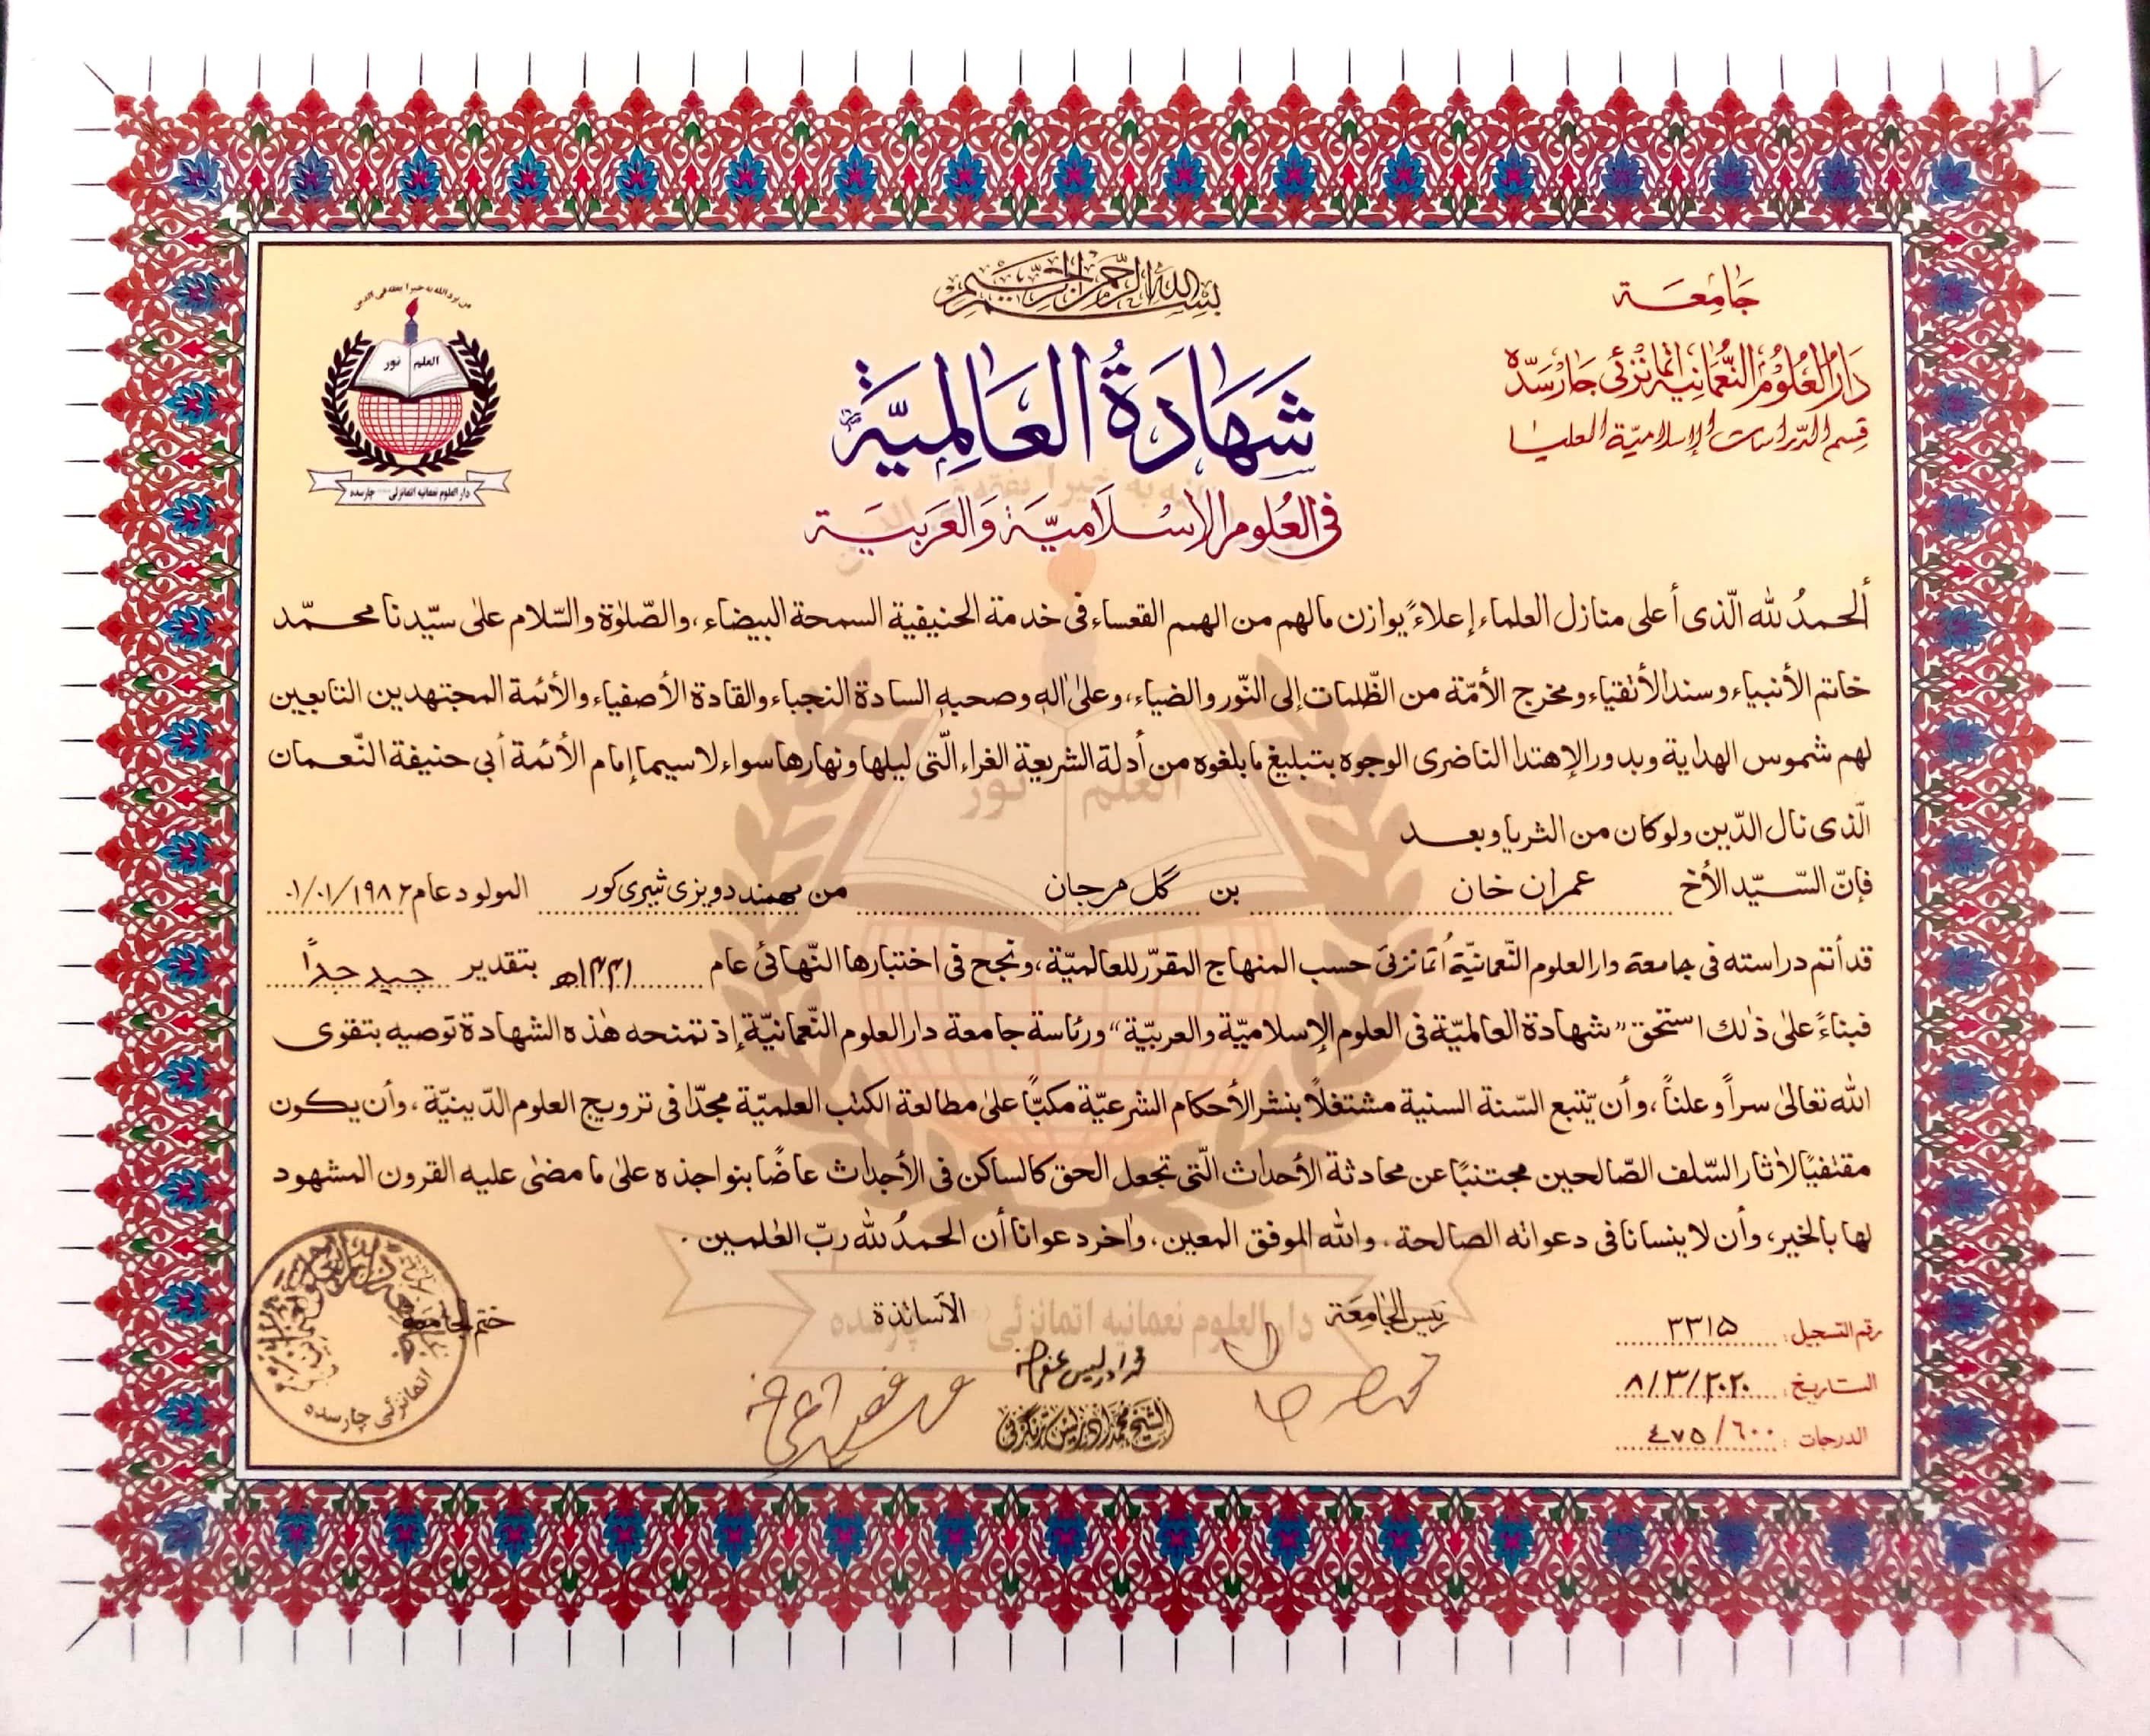 بسم الله الرحمن الرحيم
جَامِعَة
دَارُالعُلُوْم النُّعْمَانِيَه اتْمَانْزَئى چَارْسَدّه
قسم الدّراسات الإسلاميّة العليا
من يرد الله به خيرا يفقه فى الدين
العلم نور
دار العلوم نعمانيه اتمانزئی چارسده
شَهَادَةُ العَالِمِيَّة
فى العُلومِ الإسْلَاميَّة وَالعَرَبيَّة
ألحمدُ لله الّذى أعلى منازل العلماء إعلاءً يوازن مالهم من الهمم القعساء فى خدمة الحنيفية السمحة البيضاء، والصّلوٰة والسّلام علىٰ سيّدنا محمّد
خاتم الأنبياء وسند الأتقياء ومخرج الأمّة من الظّلمات إلى النّور والضياء، وعلىٰ اٰله وصحبه السادة النجباء والقادة الأصفياء والأئمة المجتهدين التابعين
لهم شموس الهداية وبدور الإهتدا الناضرى الوجوه بتبليغ ما بلغوه من أدلة الشريعة الغراء الّتى ليلها ونهارها سواء لاسيما إمام الأئمة أبي حنيفة النّعمان
الّذى نال الدّين ولوكان من الثريا وبعد
فإنّ السّيّد الأخ عمران خان بن گل مرجان من مهمند دویزی شیری کور المولود عام ٠١/٠١/١٩٨٢
قد أتم دراسته فى جامعة دارالعلوم النّعمانيّة أتمانزئى حسب المنهاج المقرّر للعالميّة، ونجح فى اختبارها النّهائى عام ١٤٤١ھ بتقدير جيد جداً
فبناءً علىٰ ذٰلك استحق "شهادة العالميّة فى العلوم الإسلاميّة والعربيّة" ورئاسة جامعة دارالعلوم النّعمانيّة إذ تمنحه هٰذه الشهادة توصيه بتقوى
الله تعالىٰ سراً وعلناً، وأن يّتبع السّنة السنية مشتغلاً بنشر الأحكام الشرعيّة مكبّاً علىٰ مطالعة الكتب العلميّة مجدّا فى ترويج العلوم الدّينيّة، وأن يكون
مقتفيًا لأثار السّلف الصّالحين مجتنبًا عن محادثة الأحداث الّتى تجعل الحق كالساكن فى الأجداث عاضًا بنواجذه علىٰ ما مضىٰ عليه القرون المشهود
لها بالخير، وأن لا ينسانا فى دعواته الصالحة. والله الموفق المعين، واٰخر دعوانا أن الحمدُ لله ربّ العٰلمين.
رقم التسجيل: ٣٣١٥
رئيس الجَامِعَة
الأساتذة
ختم الجامعة
التاريخ: ٨/٣/٢٠٢٠
محمد ادریس عفی عنہ
الشيخ محمد إدريس ترنگزئى
الدرجات: ٤٧٥/٦٠٠
اتمانزئی چارسده